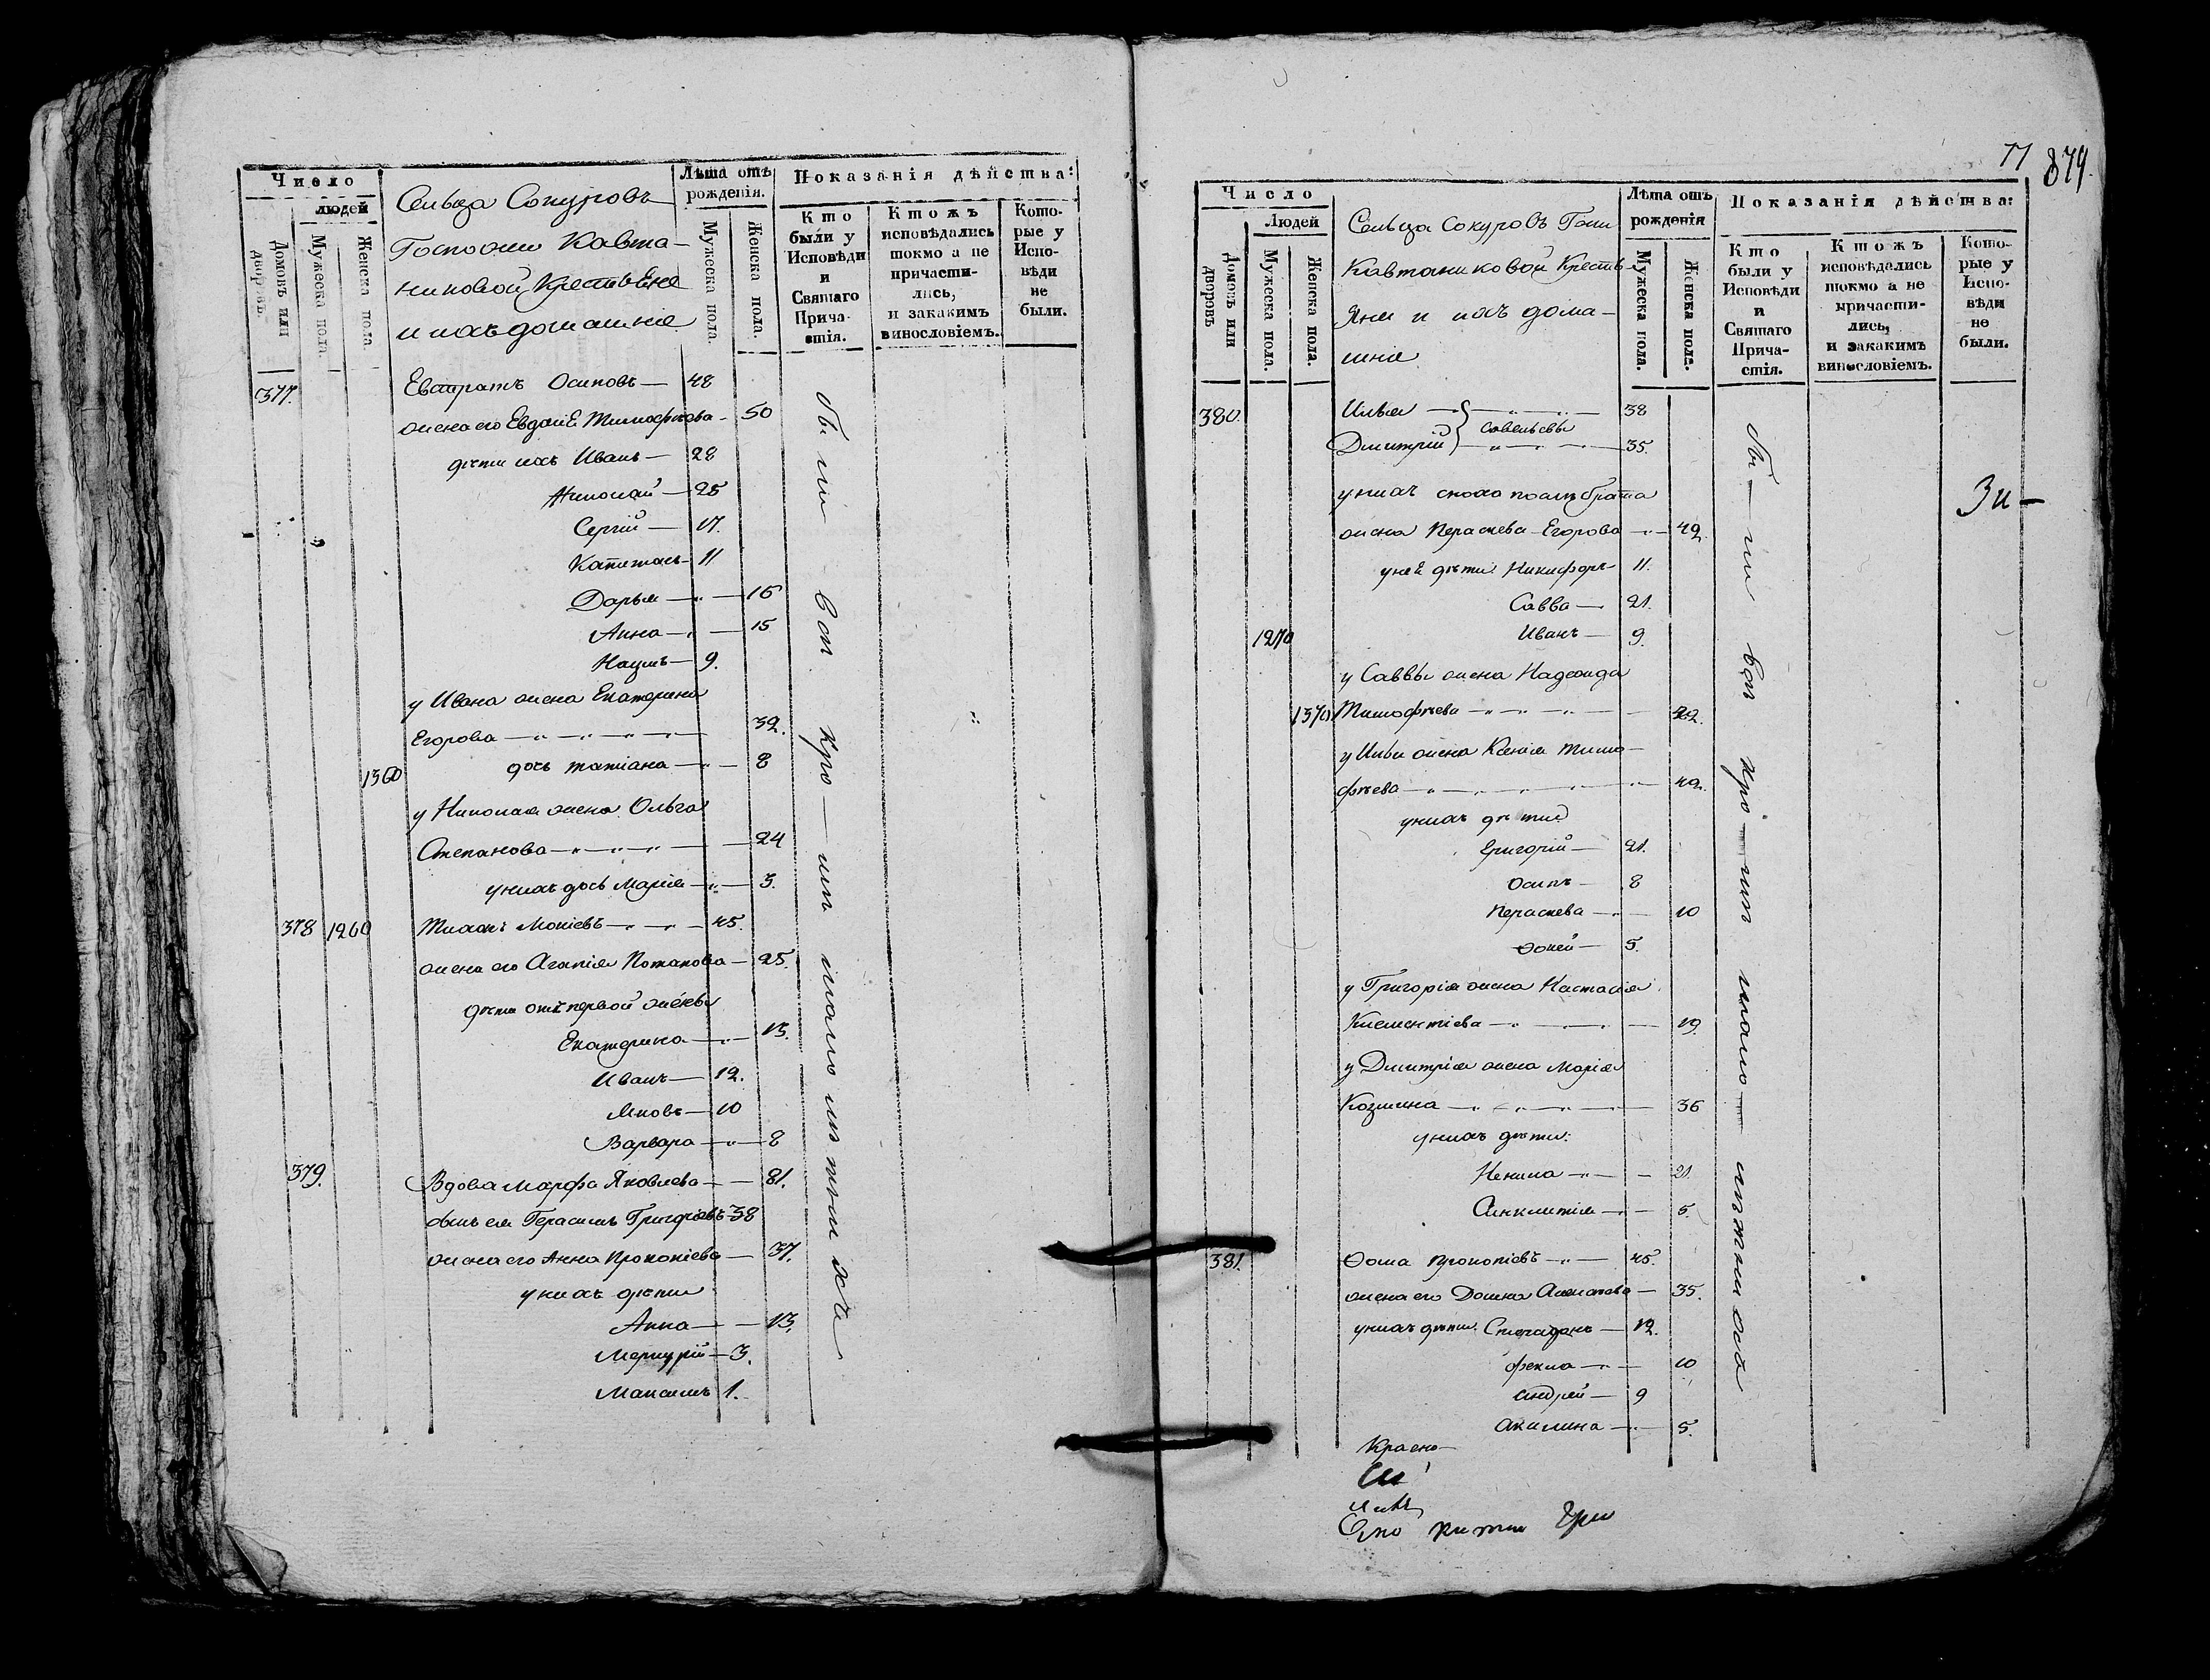 Число
людей
Домовъ или дворовъ.
Мужеска пола.
Женска пола.
Сельца Сокуровъ
Госпожи Кавта-
никовой Крестьяне
и ихъ домашніе
Лѣта отъ рожденія.
Мужеска пола.
Женска пола.
Показанія дѣйства:
Кто были у Исповѣди и Святаго Причастія.
Ктожъ исповѣдались токмо а не причастились, и закакимъ винословіемъ.
Которые у Исповѣди не были.
377. Евстратъ Осиповъ — 48
жена его Евдокія Тимофѣева — 50
дѣти ихъ Иванъ — 28
Николай — 25
Сергій — 17.
Капитонъ — 11
Дарья — 16
Анна — 15
Наумъ — 9.
у Ивана жена Екатерина
Егорова — 32.
1360 дочь татіана — 8
у Николая жена Ольга
Степанова — 24
у нихъ дочь Марія — 3.
378 1260 Тихонъ Мокіевъ — 45.
жена его Агапія Потапова — 25.
дѣти отъ первой жены
Екатерина — 13.
Иванъ — 12.
Яковъ — 10
Варвара — 8
379. Вдова Марфа Яковлева — 81.
сынъ ея Герасимъ Григорьевъ — 38
жена его Анна Прокопіева — 37.
у нихъ дѣти
Анна — 13.
Меркурій — 3.
Максимъ 1.
бы ли во кро ме мало лѣтнихъ
77 879.
Число
Людей
Домовъ или дворовъ
Мужеска пола.
Женска пола.
Сельца Сокуровъ Гопи
Кавтаниковой Кресть-
яне и ихъ дома-
шніе
Лѣта отъ рожденія
Мужеска пола.
Женска пола.
Показанія дѣйства:
Кто были у Исповѣди и Святаго Причастія.
Ктожъ исповѣдались токмо а не причастились, и закакимъ винословіемъ.
Которые у Исповѣди не были.
380. Илья — 38
Савельевы
Дмитрій — 35.
у нихъ сноха по брата
жена Пераскева Егорова — 42.
у неѣ дѣти Никифоръ — 11.
Савва — 21.
1270 Иванъ — 9.
у Саввы жена Надежда
1370 Тимофѣева — 22.
у Ильи жена Ксенія Тимо-
фѣева — 42.
у нихъ дѣти
Григорій — 21.
Осипъ — 8
Пераскева — 10
Фокей — 5.
у Григорія жена Настасія
Климентіева — 19.
у Дмитрія жена Марія
Козмина — 36
у нихъ дѣти:
Ненила — 21.
Синклитія — 5.
381. Фома Прокопіевъ — 45.
жена его Домна — 35.
у нихъ дѣти Спиридонъ — 12.
Фекла — 10
Андрей — 9
Акилина — 5.
бы — ли во кро — ме мало — лѣтнихъ
Зи —
Красно-